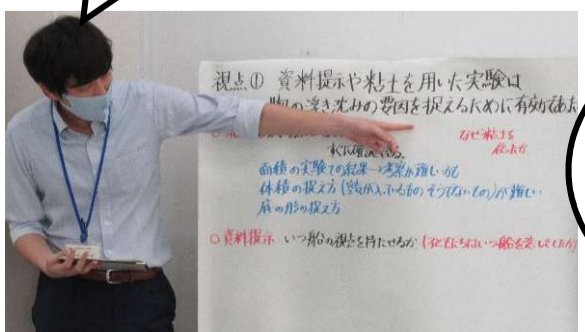 視点① 資料提示や粘土を用いた実験は
物の浮き沈みの要因を捉えるために有効であった
なぜ粘土を
使ったか
面積の実験での結果→考察が難しいかも
体積の捉え方(空気が入っているものそうでないもの)が難しい
底の形の捉え方
○資料提示 いつ船の視点を持たせるか